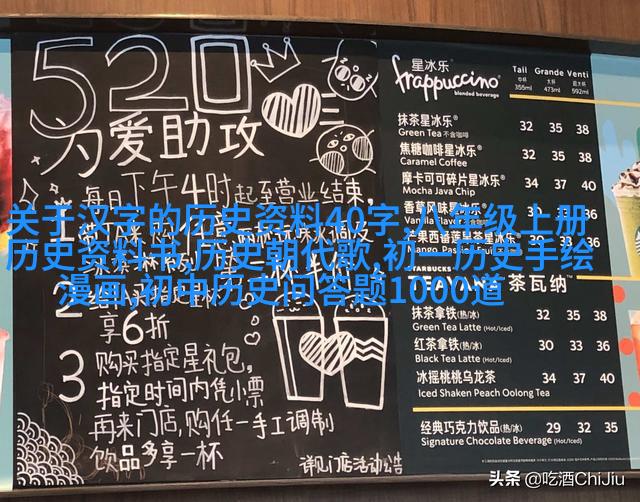 520
为爱助攻
每日下午4时起至营业结束,
享6折
3 购买指定星礼包,
指定时间内凭小票
再来门店,购任一手工调制
饮品多享一杯
详见门店活动公告
星冰乐®
frappuccino®
blended beverage
Tall Grande Venti
中杯 大杯 超大杯
355ml 473ml 592ml
抹茶星冰乐® 32 35 38
Green Tea 不含咖啡
焦糖咖啡星冰乐® 32 35 38
Caramel Coffee
摩卡可可碎片星冰乐® 34 37 40
Mocha Java Chip
香草风味星冰乐®
芒果西番莲果茶星冰乐®
STARBUCKS
TEAVANA 茶瓦纳
抹茶拿铁(热/冰) 32 35 38
Green Tea Latte (Hot/Iced)
红茶拿铁(热/冰) 30 33 36
Black Tea Latte (Hot/Iced)
冰摇桃桃乌龙茶 34 37 40
Iced Shaken Peach Oolong Tea
经典巧克力饮品(热/冰) 29 32 35
Signature Chocolate Beverage (Hot/Iced)
关于汉字的历史资料40字,
级上册
历史资料书,历史朝代歌,初一历史手绘
漫画,初中历史问答题1000道
头条 @吃酒ChiJiu